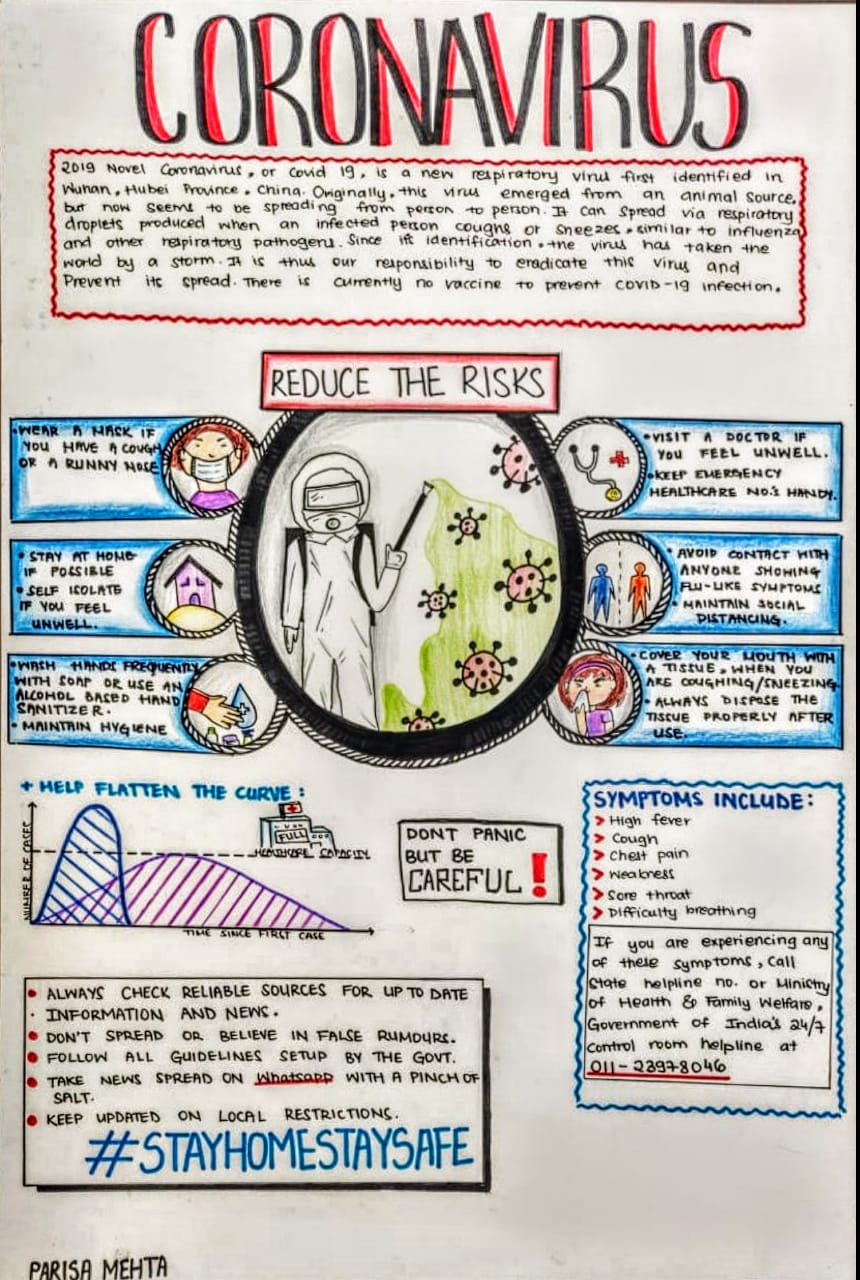 CORONAVIRUS
2019 Novel Coronavirus, or Covid 19, is a new respiratory virus first identified in
Wuhan, Hubei Province, China. Originally, this virus emerged from an animal source,
but now seems to be spreading from person to person. It can spread via respiratory
droplets produced when an infected person coughs or sneezes, similar to influenza
and other respiratory pathogens. Since its identification, the virus has taken the
world by a storm. It is thus our responsibility to eradicate this virus and
Prevent its spread. There is currently no vaccine to prevent COVID-19 infection.
REDUCE THE RISKS
•WEAR A MASK IF
YOU HAVE A COUGH
OR A RUNNY NOSE
• STAY AT HOME
IF POSSIBLE
• SELF ISOLATE
IF YOU FEEL
UNWELL.
•WASH HANDS FREQUENTLY
WITH SOAP OR USE AN
ALCOHOL BASED HAND
SANITIZER.
• MAINTAIN HYGIENE
•VISIT A DOCTOR IF
YOU FEEL UNWELL.
•KEEP EMERGENCY
HEALTHCARE NO.S HANDY.
• AVOID CONTACT WITH
ANYONE SHOWING
FLU-LIKE SYMPTOMS
• MAINTAIN SOCIAL
DISTANCING.
•COVER YOUR MOUTH WITH
A TISSUE, WHEN YOU
ARE COUGHING/SNEEZING
•ALWAYS DISPOSE THE
TISSUE PROPERLY AFTER
USE.
+ HELP FLATTEN THE CURVE:
NUMBER OF CASES
FULL
HEALTHCARE CAPACITY
TIME SINCE FIRST CASE
DONT PANIC
BUT BE
CAREFUL!
SYMPTOMS INCLUDE:
> High fever
> Cough
> Chest pain
> Weakness
> Sore throat
> Difficulty breathing
If you are experiencing any
of these symptoms, call
State helpline no. or Ministry
of Health & Family Welfare,
Government of India's 24/7
control room helpline at
011-23978046
• ALWAYS CHECK RELIABLE SOURCES FOR UP TO DATE
• INFORMATION AND NEWS.
• DON'T SPREAD OR BELIEVE IN FALSE RUMOURS.
• FOLLOW ALL GUIDELINES SETUP BY THE GOVT.
• TAKE NEWS SPREAD ON Whatsapp WITH A PINCH OF
SALT.
• KEEP UPDATED ON LOCAL RESTRICTIONS.
#STAYHOMESTAYSAFE
PARISA MEHTA